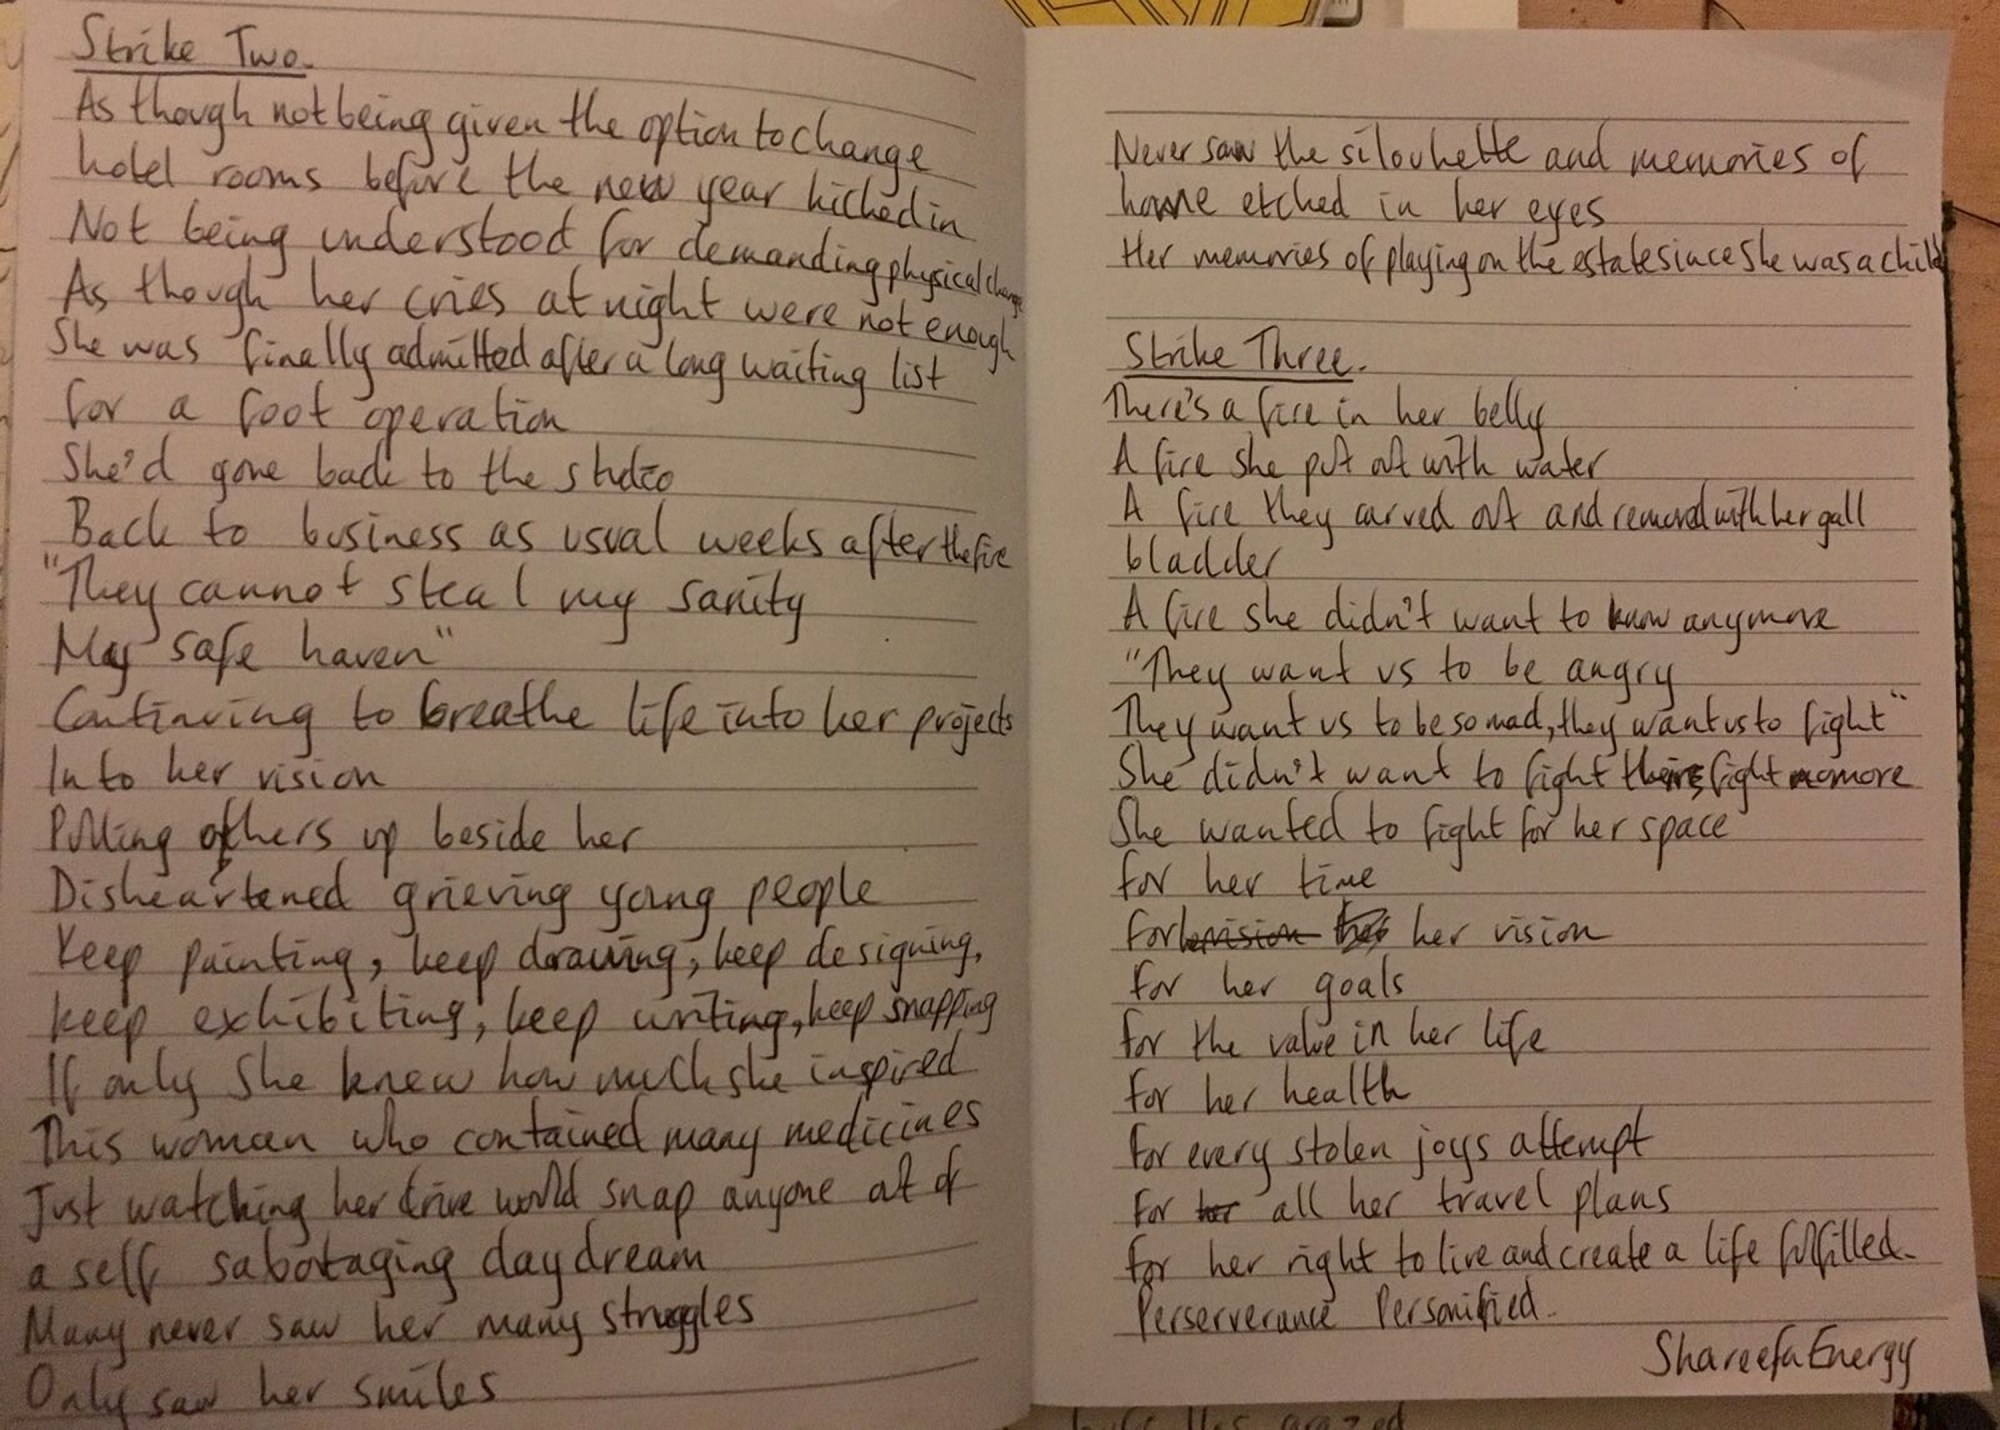 Strike Two.
As though not being given the option to change
hotel rooms before the new year kicked in
Not being understood for demanding physical change
As though her cries at night were not enough
She was finally admitted after a long waiting list
for a foot operation
She'd gone back to the studio
Back to business as usual weeks after the fire
"They cannot steal my sanity
My safe haven"
Continuing to breathe life into her projects
Into her vision
Pulling others up beside her
Disheartened grieving young people
Keep painting, keep drawing, keep designing,
keep exhibiting, keep writing, keep snapping
If only she knew how much she inspired
This woman who contained many medicines
Just watching her drive would snap anyone out of
a self sabotaging daydream
Many never saw her many struggles
Only saw her smiles
Never saw the silouhette and memories of
home etched in her eyes
Her memories of playing on the estate since she was a child
Strike Three.
There's a fire in her belly
A fire she put out with water
A fire they carved out and removed with her gall
bladder
A fire she didn't want to know anymore
"They want us to be angry
They want us to be so mad, they want us to fight"
She didn't want to fight their fight no more
She wanted to fight for her space
for her time
For her vision her vision
for her goals
for the value in her life
for her health
for every stolen joys attempt
For her all her travel plans
for her right to live and create a life fulfilled.
Perserverance Personified.
ShareefaEnergy